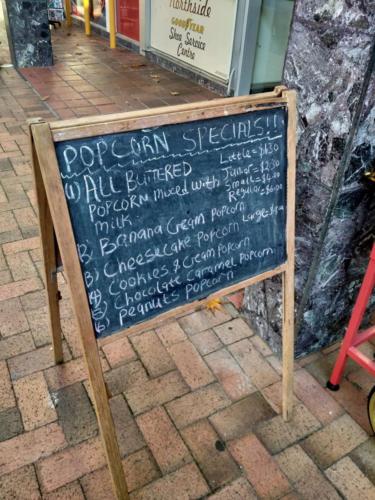 Northside
GOODYEAR
Shoe Service
Centre
POPCORN SPECIALS!!
(1) ALL BUTTERED
POPCORN mixed with
milk.
2) Banana Cream Popcorn
3) Cheesecake Popcorn
4) Cookies & Cream Popcorn
5) Chocolate Caramel Popcorn
6) Peanuts Popcorn
Little = $1.30
Junior = $2.50
Small = $4.00
Regular = $6.00
Large =